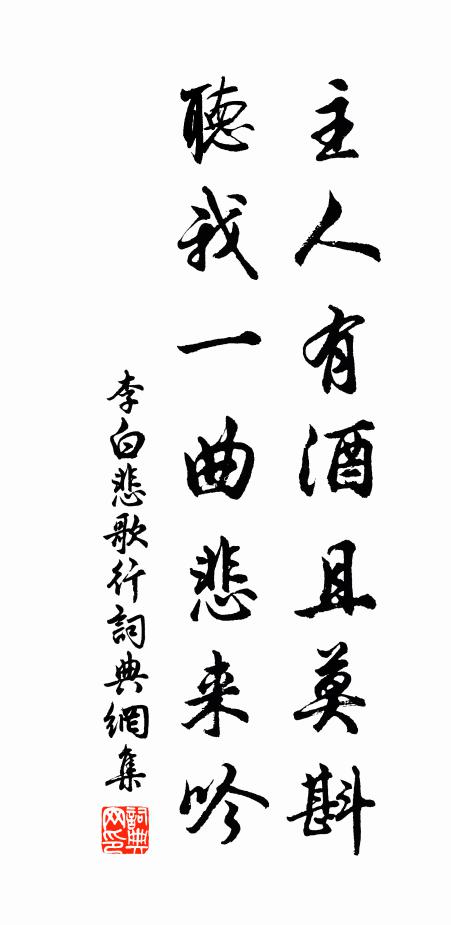 主人有酒且莫斟
聽我一曲悲来吟
李白悲歌行詞典網集
詞典
网印